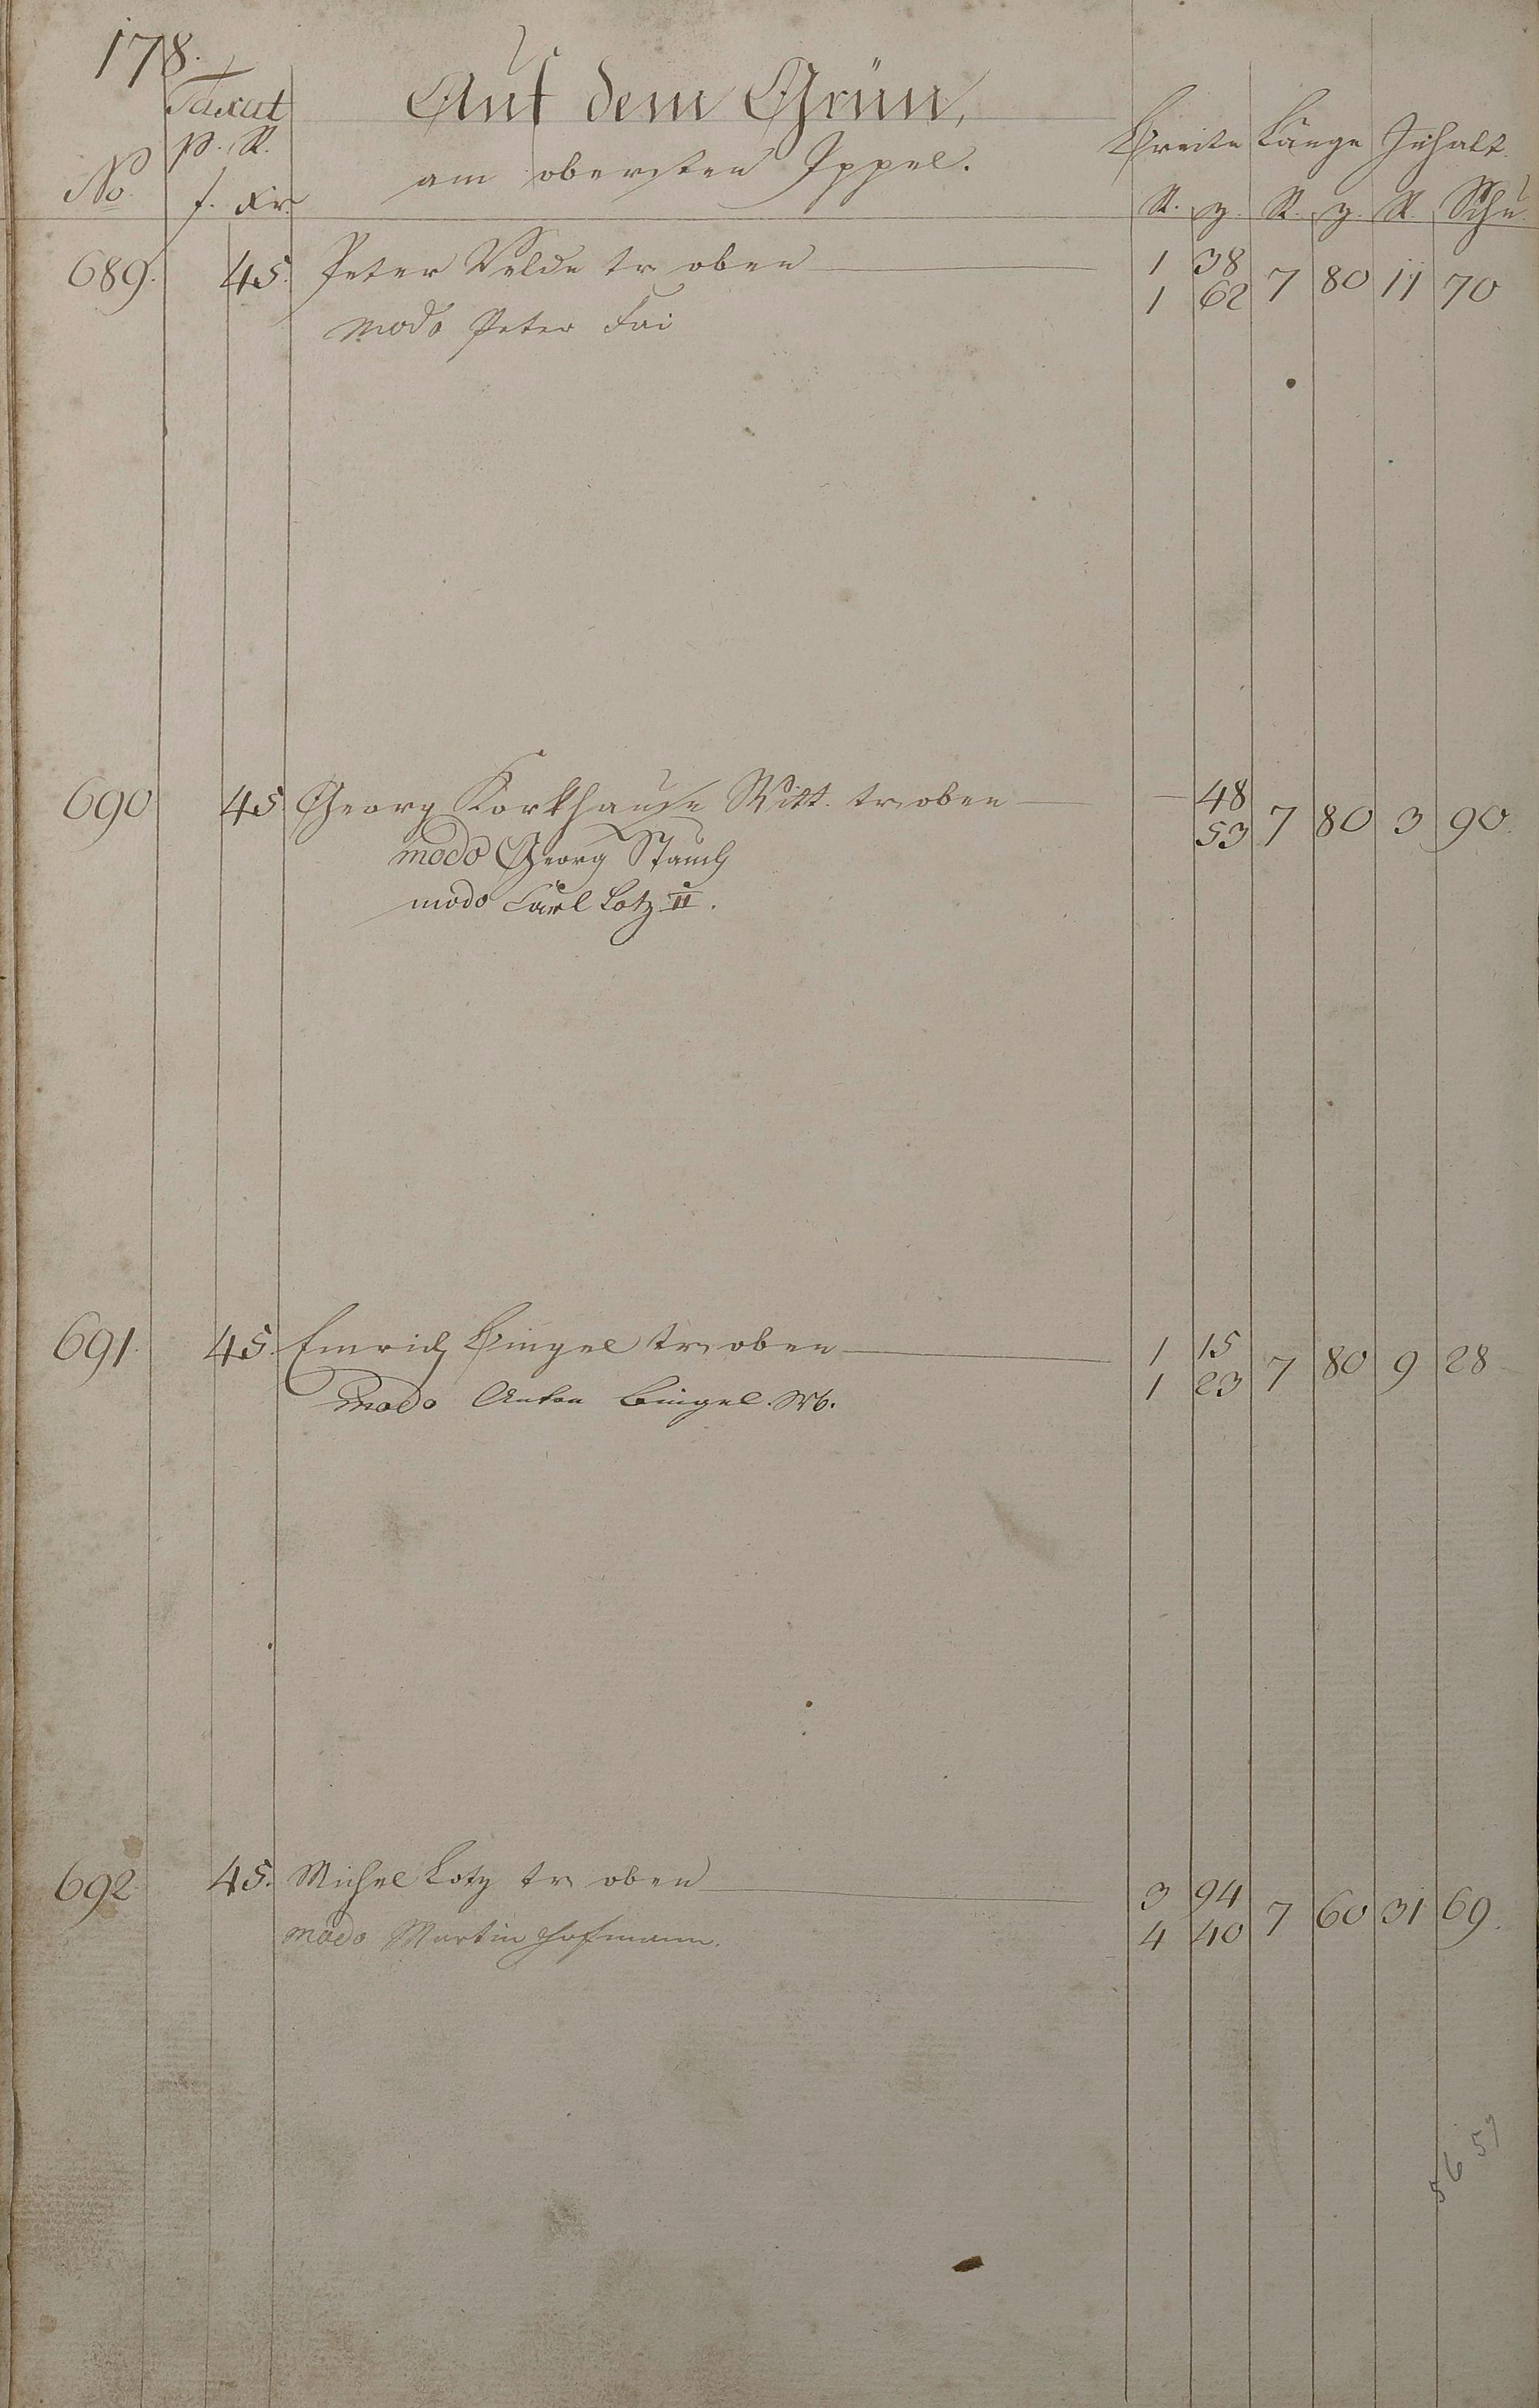 178.
Taxat Auf dem Grün,
p. R. Breite Länge Inhalt.
No. am obersten Ippel.
f. xr. R. z. R. z. R. Schu
689. 45. Peter Velde tr. oben 1 38 7 80 11 70
1 62
modo Peter Fai
690 45 Georg Korkhause Witt. tr. oben — 48 7 80 3 90.
53
modo Georg Stauch
modo Carl Lotz II.
691. 45. Emrich Bingel tr. oben 1 15 7 80 9 28
1 23
modo Anton Bingel. Wb.
692. 45. Michel Lotz tr. oben 3 94 7 60 31 69.
4 40
modo Martin Hofmann.